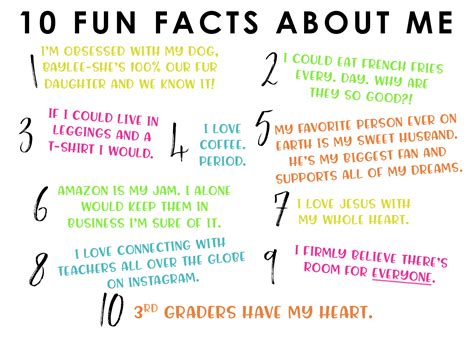 10 FUN FACTS ABOUT ME
1 I'M OBSESSED WITH MY DOG,
BAYLEE-SHE'S 100% OUR FUR
DAUGHTER AND WE KNOW IT!
2 I COULD EAT FRENCH FRIES
EVERY. DAY. WHY ARE
THEY SO GOOD?!
3 IF I COULD LIVE IN
LEGGINGS AND A
T-SHIRT I WOULD.
4 I LOVE
COFFEE.
PERIOD.
5 MY FAVORITE PERSON EVER ON
EARTH IS MY SWEET HUSBAND.
HE'S MY BIGGEST FAN AND
SUPPORTS ALL OF MY DREAMS.
6 AMAZON IS MY JAM. I ALONE
WOULD KEEP THEM IN
BUSINESS I'M SURE OF IT.
7 I LOVE JESUS WITH
MY WHOLE HEART.
8 I LOVE CONNECTING WITH
TEACHERS ALL OVER THE GLOBE
ON INSTAGRAM.
9 I FIRMLY BELIEVE THERE'S
ROOM FOR EVERYONE.
10 3RD GRADERS HAVE MY HEART.